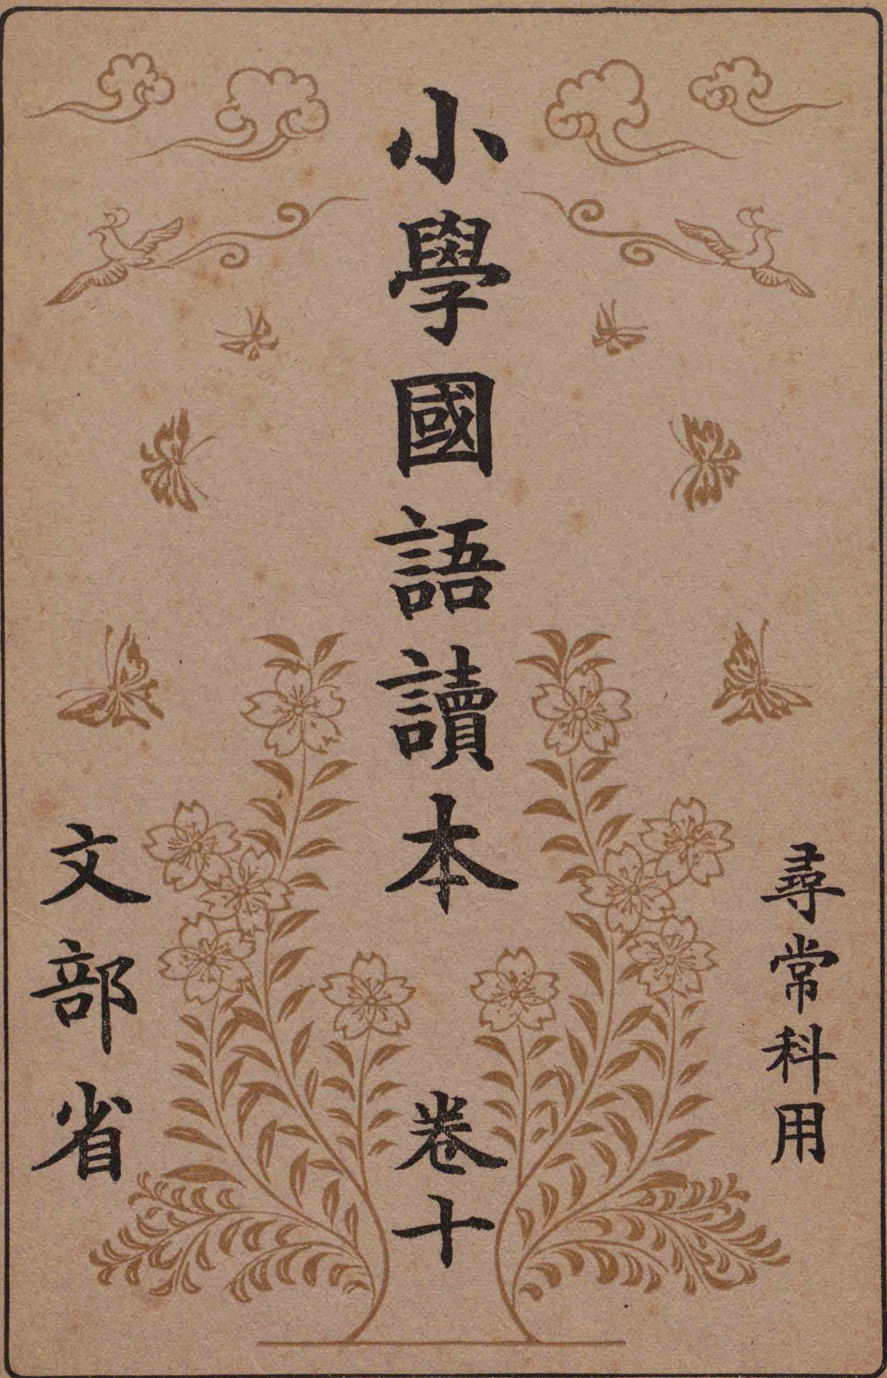 尋常科用
小學國語讀本
卷十
文部省